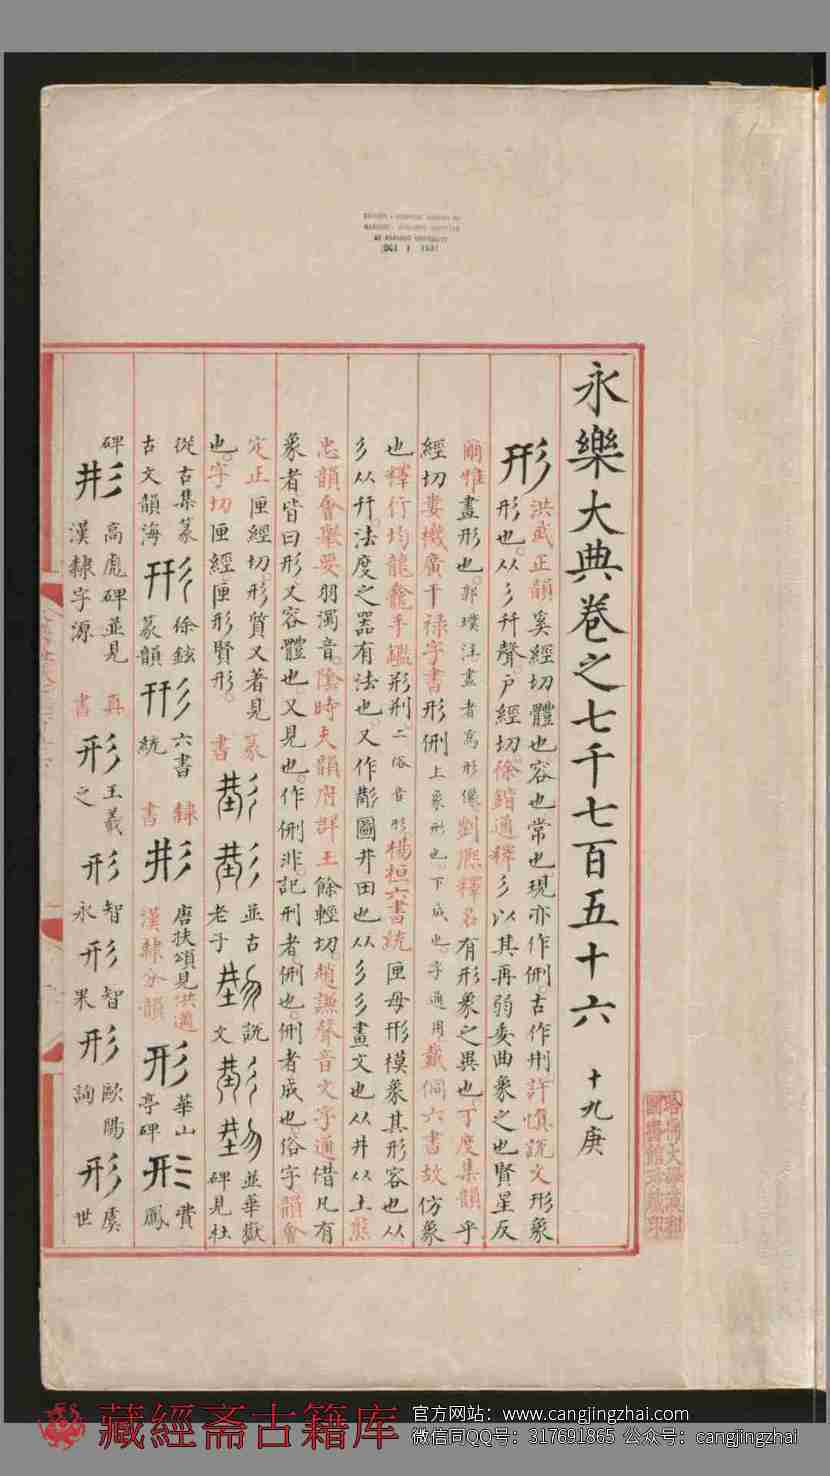 永樂大典卷之七千七百五十六 十九庚
形
洪武正韻奚經切體也容也常也現亦作侀古作㓝許愼說文形象
形也从彡幵聲戶經切徐鍇通釋彡以其再弱委曲象之也賢星反
爾雅畫形也郭璞注畫者爲形像劉熙釋名有形象之異也丁度集韻乎
經切婁機廣干祿字書形侀上象形也下成也字通用戴侗六書故仿象
也釋行均龍龕手鑑形㓝二俗音形楊桓六書統匣母形模象其形容也从
彡从幵法度之器有法也又作圖井田也从彡彡畫文也从井从土熊
忠韻會舉要羽濁音陰時夫韻府群玉餘輕切趙謙聲音文字通借凡有
象者皆曰形又容體也又見也作侀非記刑者侀也侀者成也俗字韻會
定正匣經切形質又著見
也字切匣經匣形賢形
篆書
並古老子
說文
並華嶽碑見杜
從古集篆古文韻海
形 徐鉉篆韻
形 六書統
隸書
形 唐扶頌見洪适漢隸分韻
形 華山亭碑
形 費鳳
碑
形 高彪碑並見漢隸字源
真書
形 王羲之
形 智永
形 智果
形 歐陽詢
形 虞世
哈佛大學漢和圖書館珍藏印
OCT 1 1931
藏經斋古籍库
官方网站：www.cangjingzhai.com
微信同QQ号：317691865 公众号：cangjingzhai